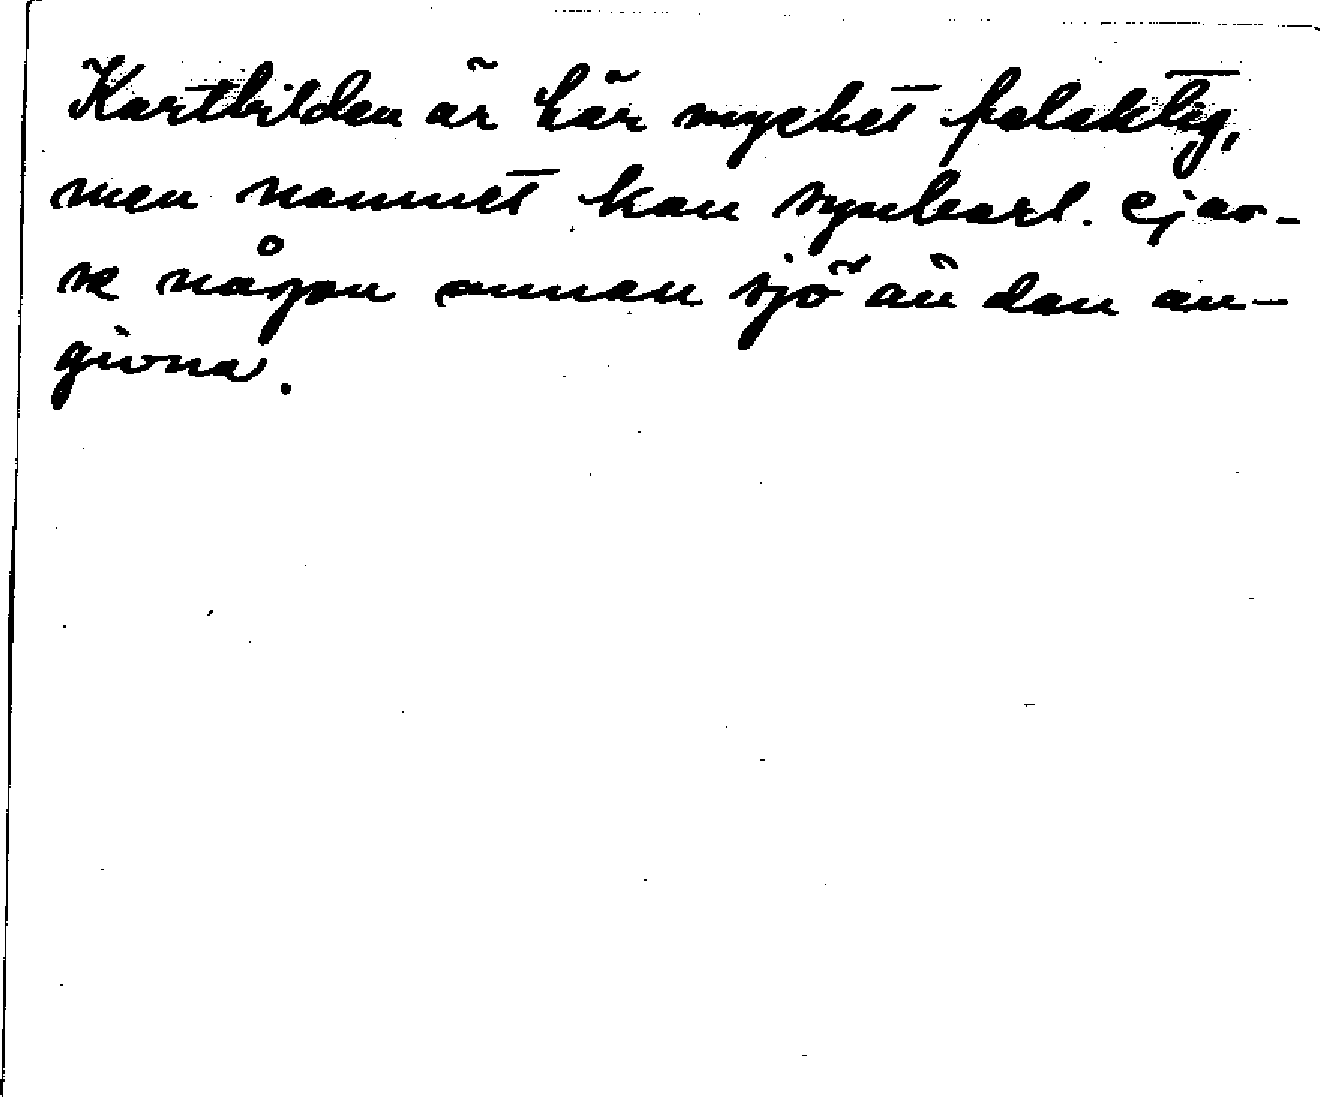 Kartbilden är här mycket felaktig,
men namnet kan synbarl. ej av-
se någon annan sjö än den an-
givna.